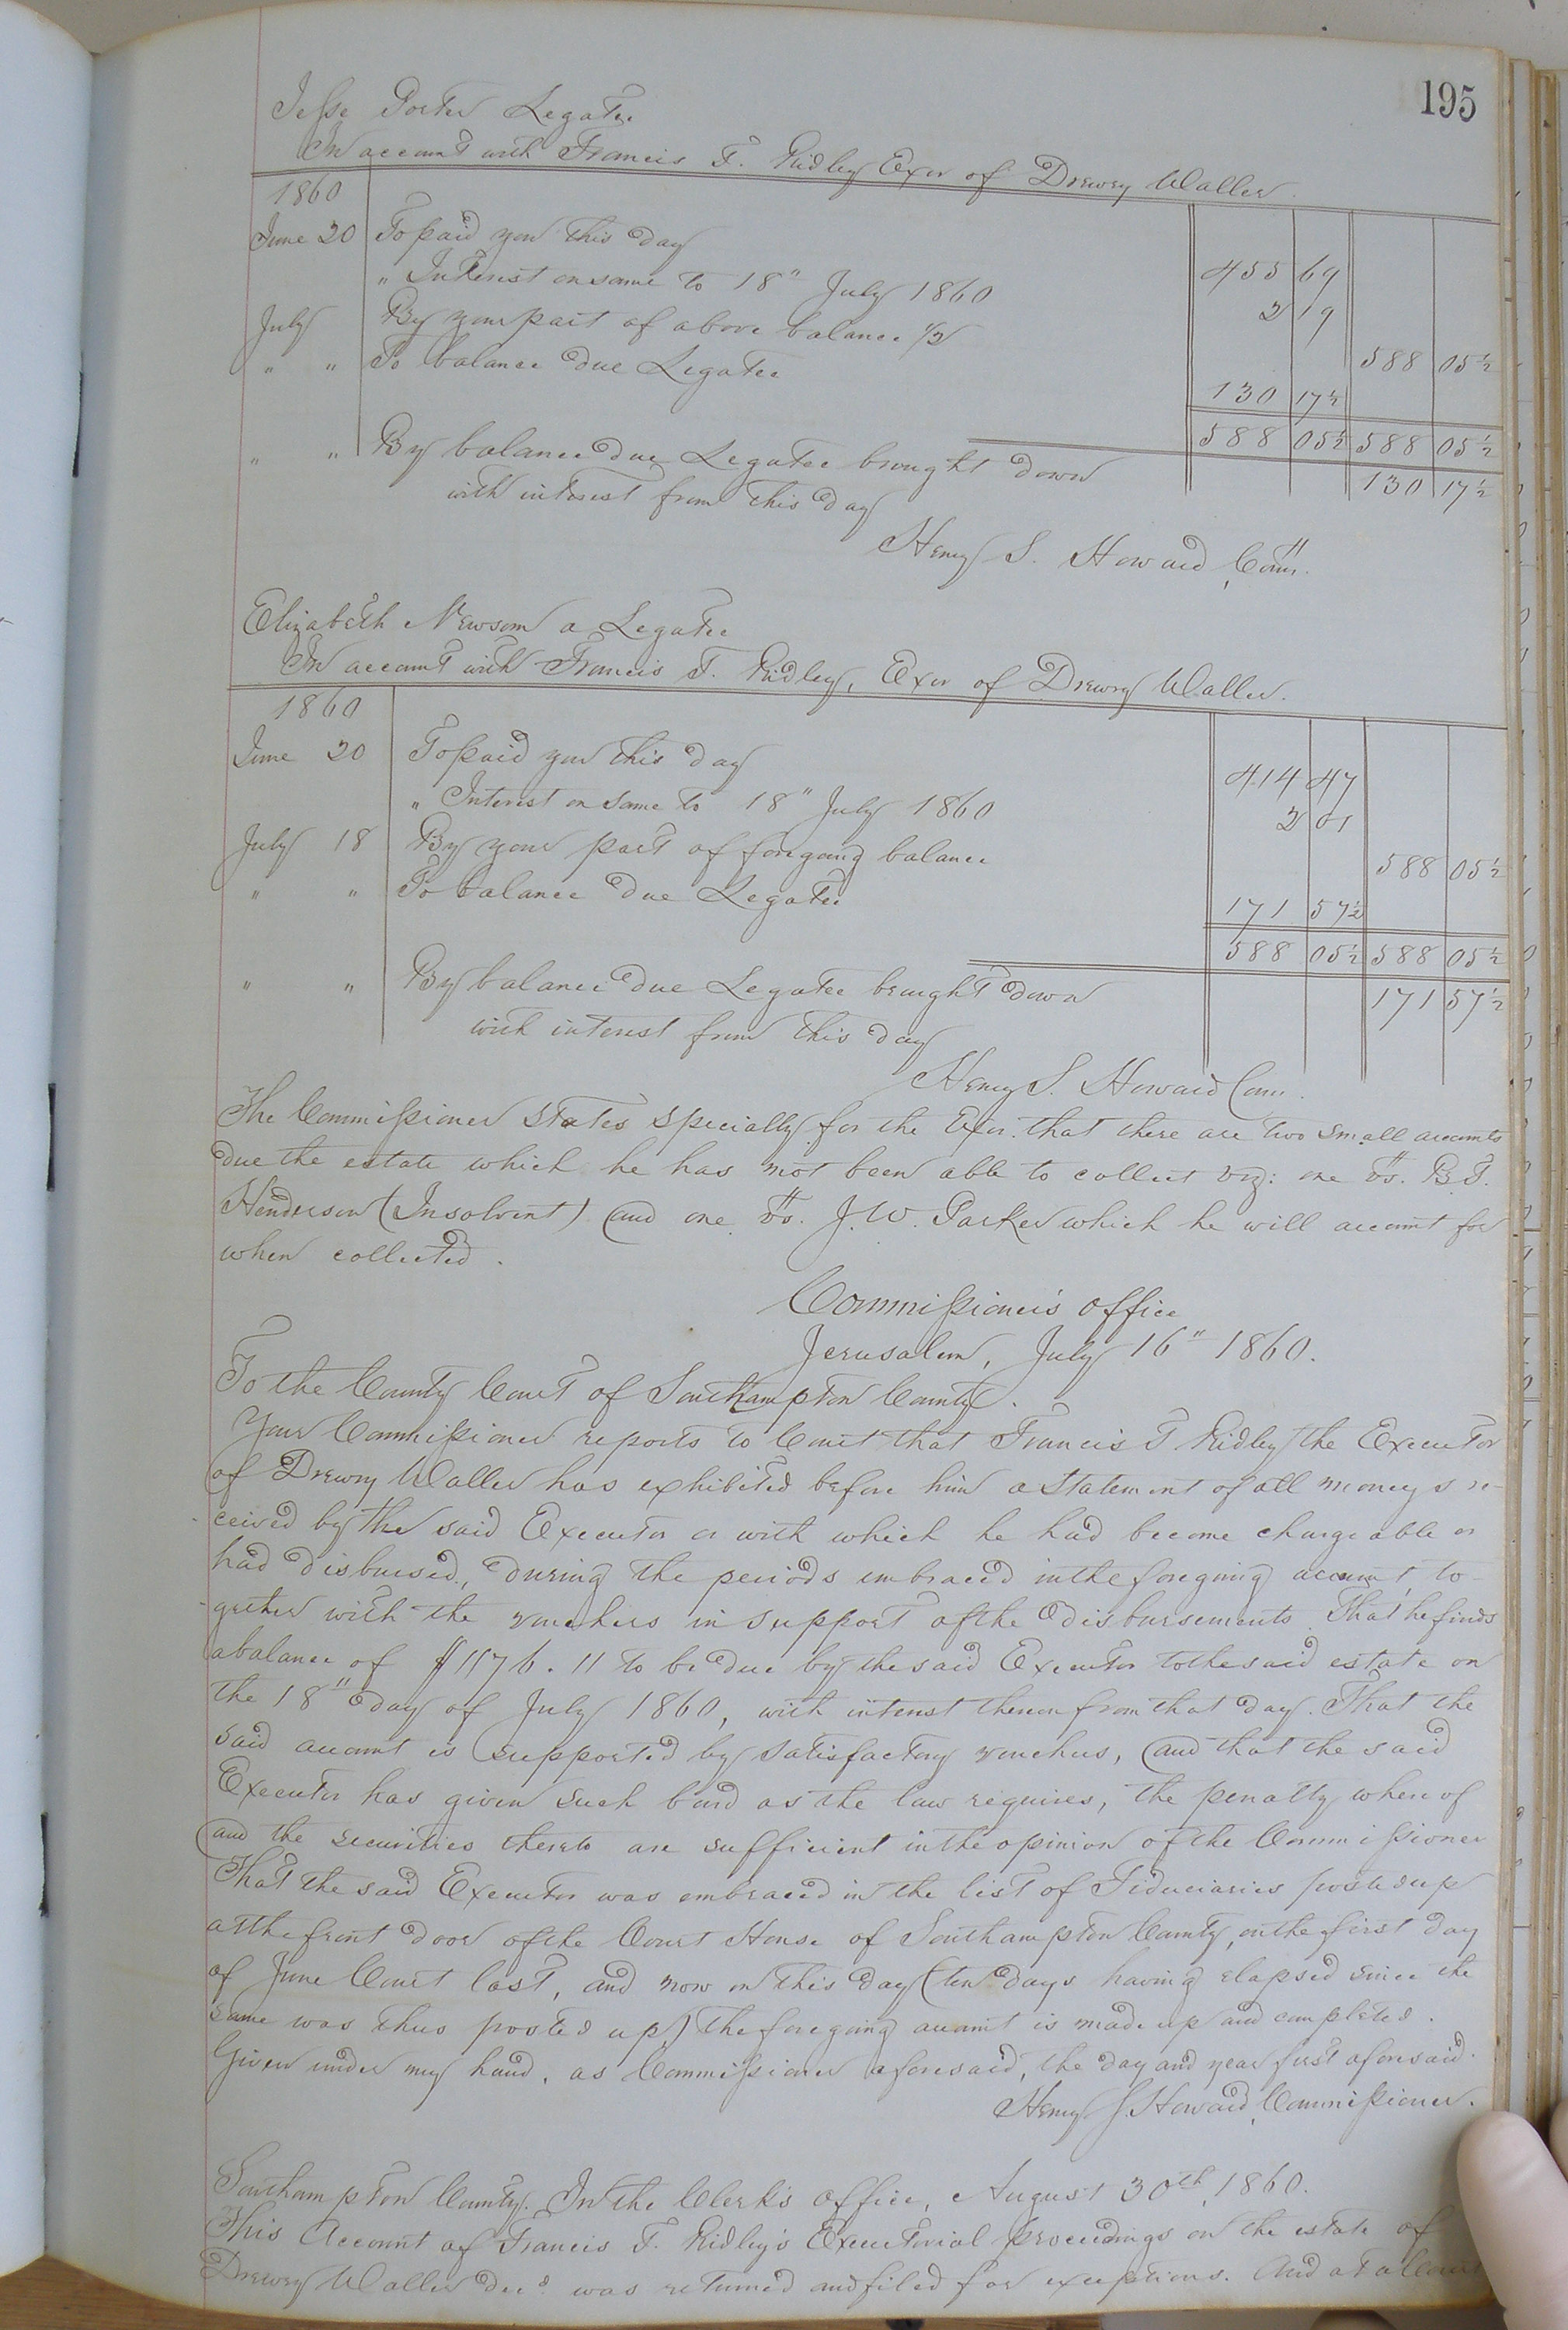 195
Jesse Porter Legatee
In account with Francis T. Ridley Exor of Drewry Waller.
1860
June 20 To paid you this day 455 69
" Interest on same to 18" July 1860 2 19
July By your part of above balance 1/2 588 05½
" " To balance due Legatee 130 17½
588 05½ 588 05½
" " By balance due Legatee brought down 130 17½
with interest from this day
Henry S. Howard, Comr.
Elizabeth Newsom a Legatee
In account with Francis T. Ridley, Exor of Drewry Waller.
1860
June 20 To paid you this day 414 47
" Interest on same to 18" July 1860 2 01
July 18 By your part of foregoing balance 588 05½
" " To balance due Legatee 171 57½
588 05½ 588 05½
" " By balance due Legatee brought down 171 57½
with interest from this day
Henry S. Howard Comr.
The Commissioner states specially for the Exor. that there are two small accounts
due the estate which he has not been able to collect viz: one vs. B.T.
Henderson (Insolvent) and one vs. J. W. Parker which he will account for
when collected.
Commissioner's office
Jerusalem, July 16" 1860.
To the County Court of Southampton County.
Your Commissioner reports to Court that Francis T Ridley the Executor
of Drewry Waller has exhibited before him a Statement of all moneys re-
ceived by the said Executor or with which he had become chargeable or
had disbursed, during the periods embraced in the foregoing account to-
gether with the vouchers in support of the disbursements. That he finds
a balance of $1176.11 to be due by the said Executor to the said estate on
the 18" day of July 1860, with interest thereon from that day. That the
said account is supported by satisfactory vouchers, and that the said
Executor has given such bond as the law requires, the penalty whereof
and the securities thereto are sufficient in the opinion of the Commissioner
That the said Executor was embraced in the list of Fiduciaries posted up
at the front door of the Court House of Southampton County, on the first day
of June Court last, and now on this day (ten days having elapsed since the
same was thus posted up) the foregoing account is made up and completed.
Given under my hand, as Commissioner aforesaid, the day and year first aforesaid.
Henry S. Howard, Commissioner.
Southampton County. In the Clerk's office, August 30th, 1860.
This Account of Francis T. Ridley's Executorial proceedings on the estate of
Drewry Waller decd. was returned and filed for exceptions. And at a Court